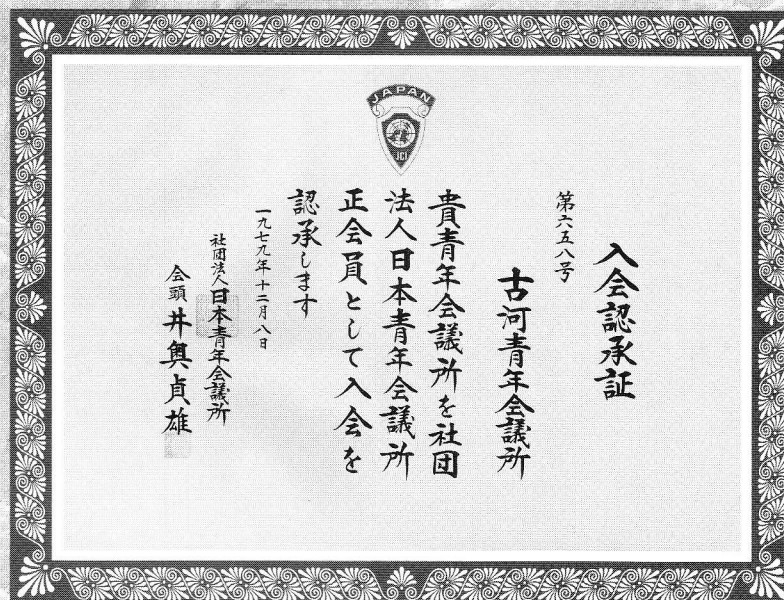 JAPAN
JCI
入会認承証
第六五八号
古河青年会議所
貴青年会議所を社団
法人日本青年会議所
正会員として入会を
認承します
一九七九年十二月八日
社団法人日本青年会議所
会頭 井奥貞雄